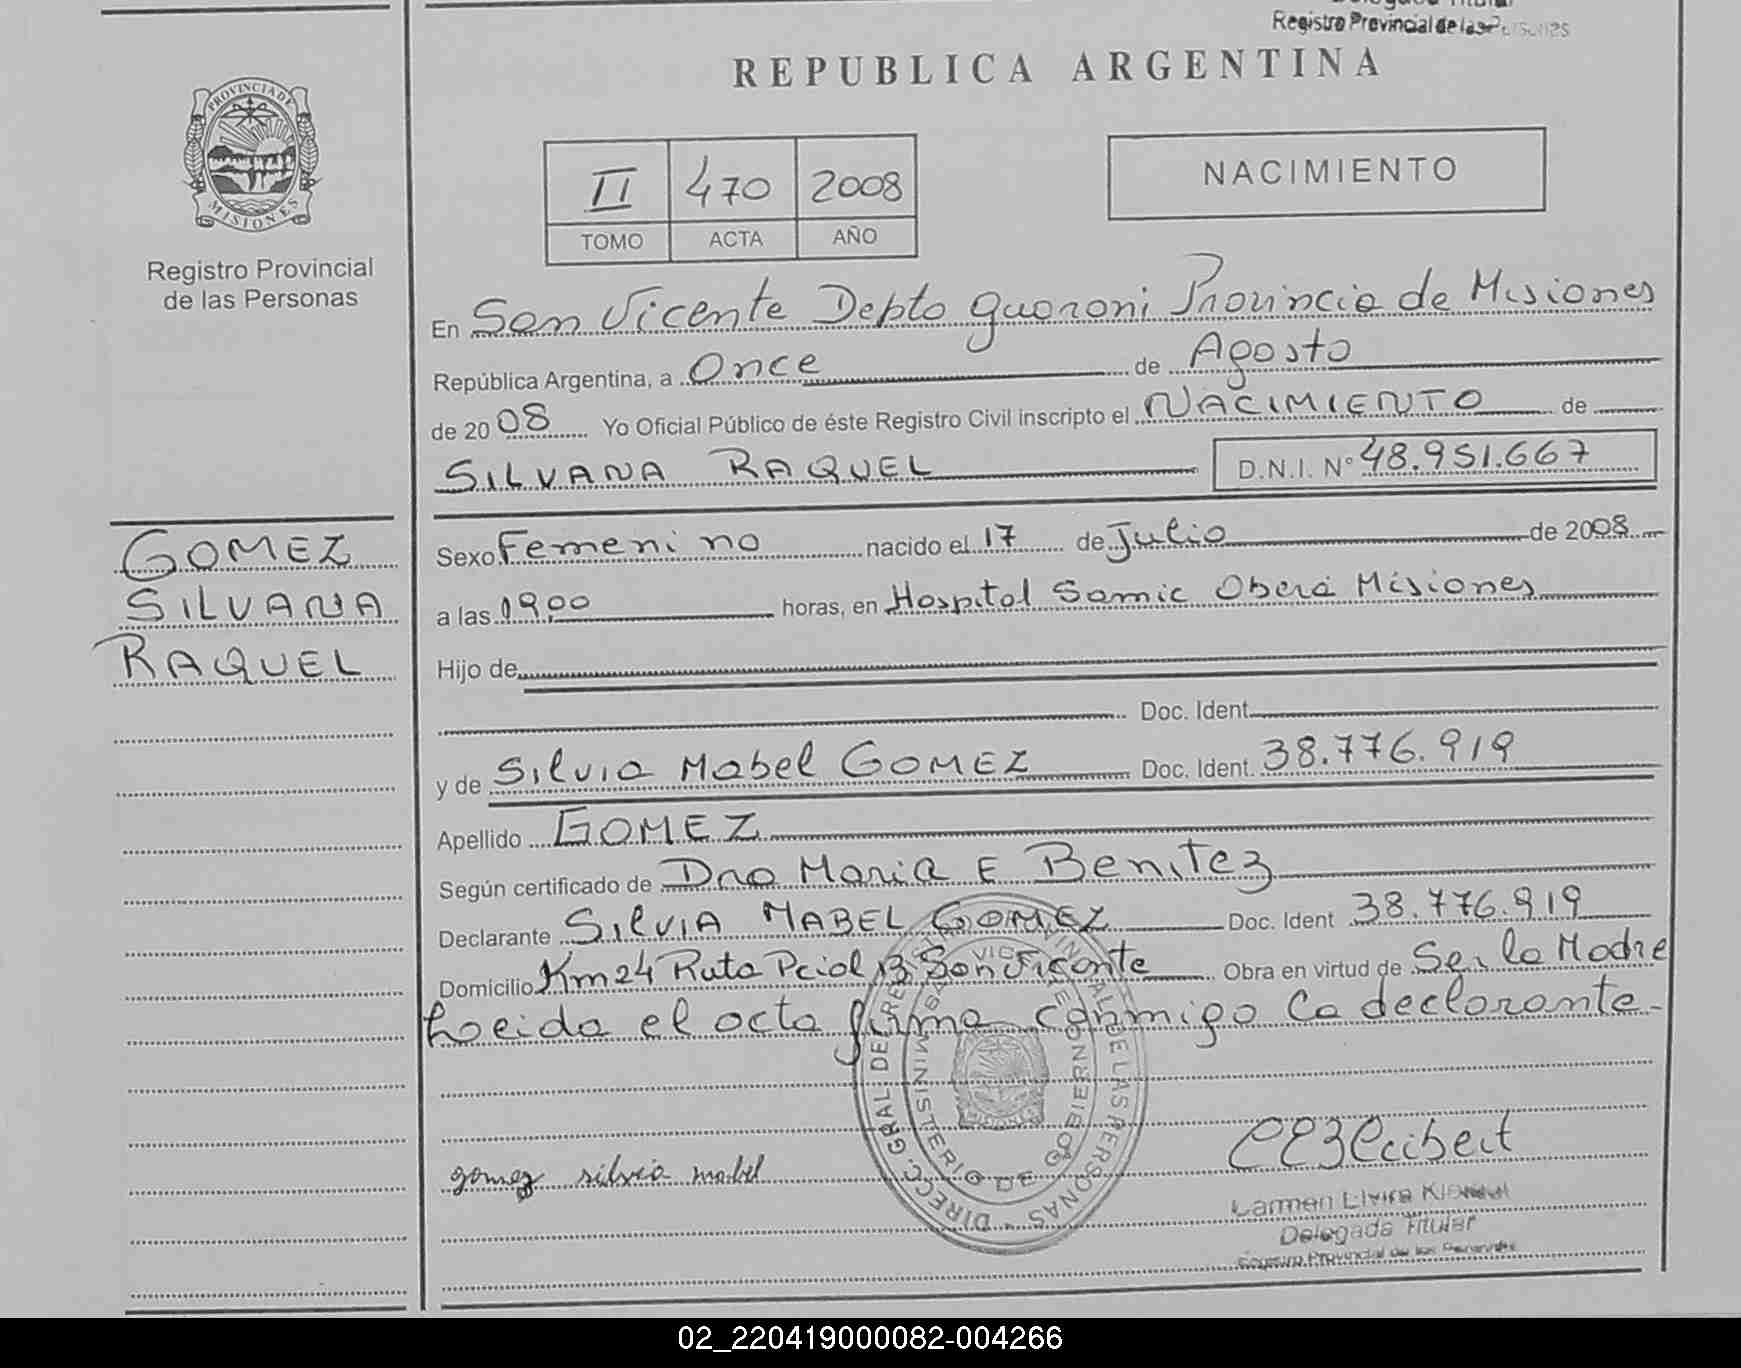 Registro Provincial de las Personas
REPUBLICA ARGENTINA
PROVINCIA DE
MISIONES
Registro Provincial
de las Personas
II 470 2008
TOMO ACTA AÑO
NACIMIENTO
En San Vicente Depto guaraní Provincia de Misiones
República Argentina, a Once de Agosto
de 2008 Yo Oficial Público de éste Registro Civil inscripto el NACIMIENTO de
SILVANA RAQUEL D.N.I. Nº 48.951.667
GOMEZ
SILVANA
RAQUEL
Sexo Femenino nacido el 17 de Julio de 2008
a las 19,00 horas, en Hospital Samic Oberá Misiones
Hijo de
Doc. Ident.
y de Silvia Mabel GOMEZ Doc. Ident. 38.776.919
Apellido GOMEZ
Según certificado de Dra Maria E Benitez
Declarante SILVIA MABEL GOMEZ Doc. Ident 38.776.919
Domicilio Km 24 Ruta Pcial 13 San Vicente Obra en virtud de Ser la Madre
Leida el acta firma conmigo la declarante.
gomez silvia mabel
Carmen Elvira
Delegada Titular
Registro Provincial de las Personas
DIRECC. GRAL DE REGISTRO PROVINCIAL DE LAS PERSONAS
MINISTERIO DE GOBIERNO
02_220419000082-004266